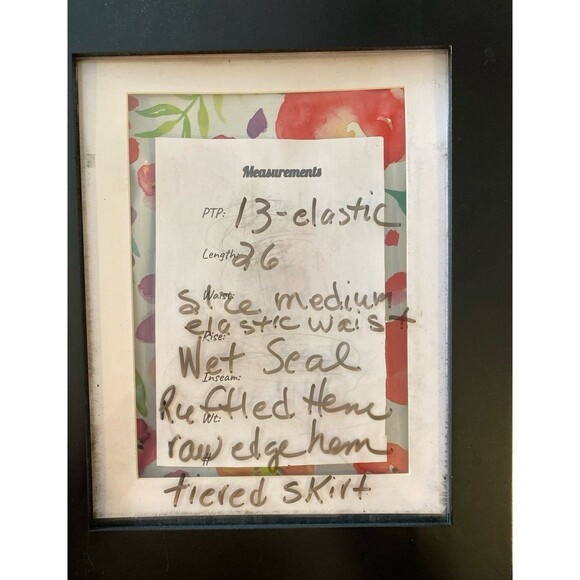 Measurements
PTP: 13-elastic
Length: 26
Waist: size medium
elastic waist
Rise:
Wet Seal
Inseam:
Ruffled Hem
Wt:
raw edge hem
#
tiered skirt